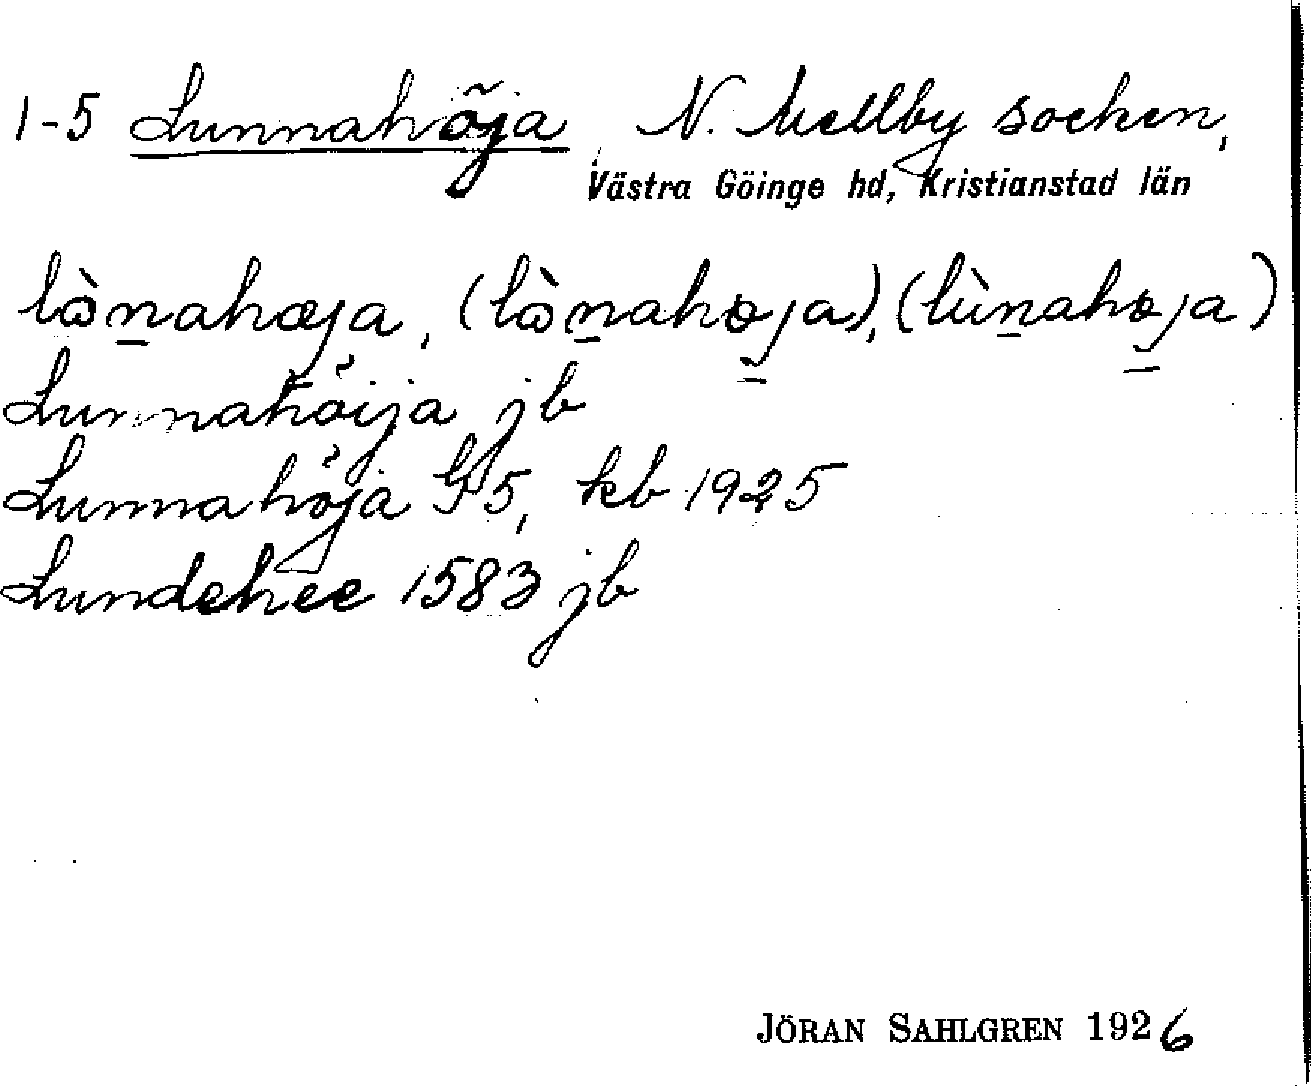 1-5 Lunnahöja N. Mellby socken,
Västra Göinge hd, Kristianstad län
lὼnahæja, (lὼnahøja), (lùnahøja)
Lunnahöija jb
Lunnahöja G5, kb 1925
Lundehee 1583 jb
JÖRAN SAHLGREN 1926